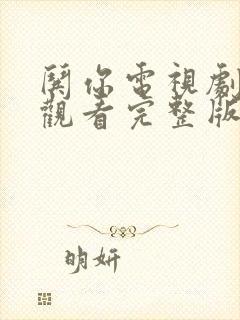 關你電視劇
觀看完整版
明妍